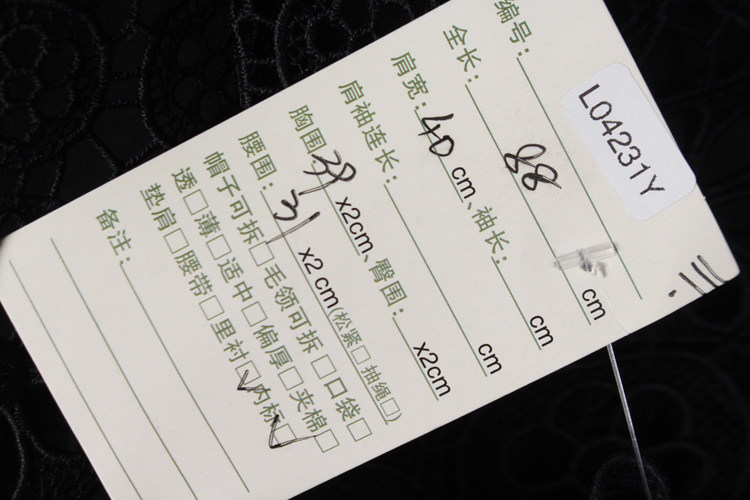 编号: L04231Y
全长: 88 cm
肩宽: 40 cm、袖长: cm
肩袖连长: cm
胸围: 39 x2cm、臀围: x2cm
腰围: 31 x2cm(松紧□ 抽绳□)
帽子可拆□ 毛领可拆□ 口袋□
透□ 薄□ 适中□ 偏厚□ 夹棉□
垫肩□ 腰带□ 里衬☑ 内标☑
备注: